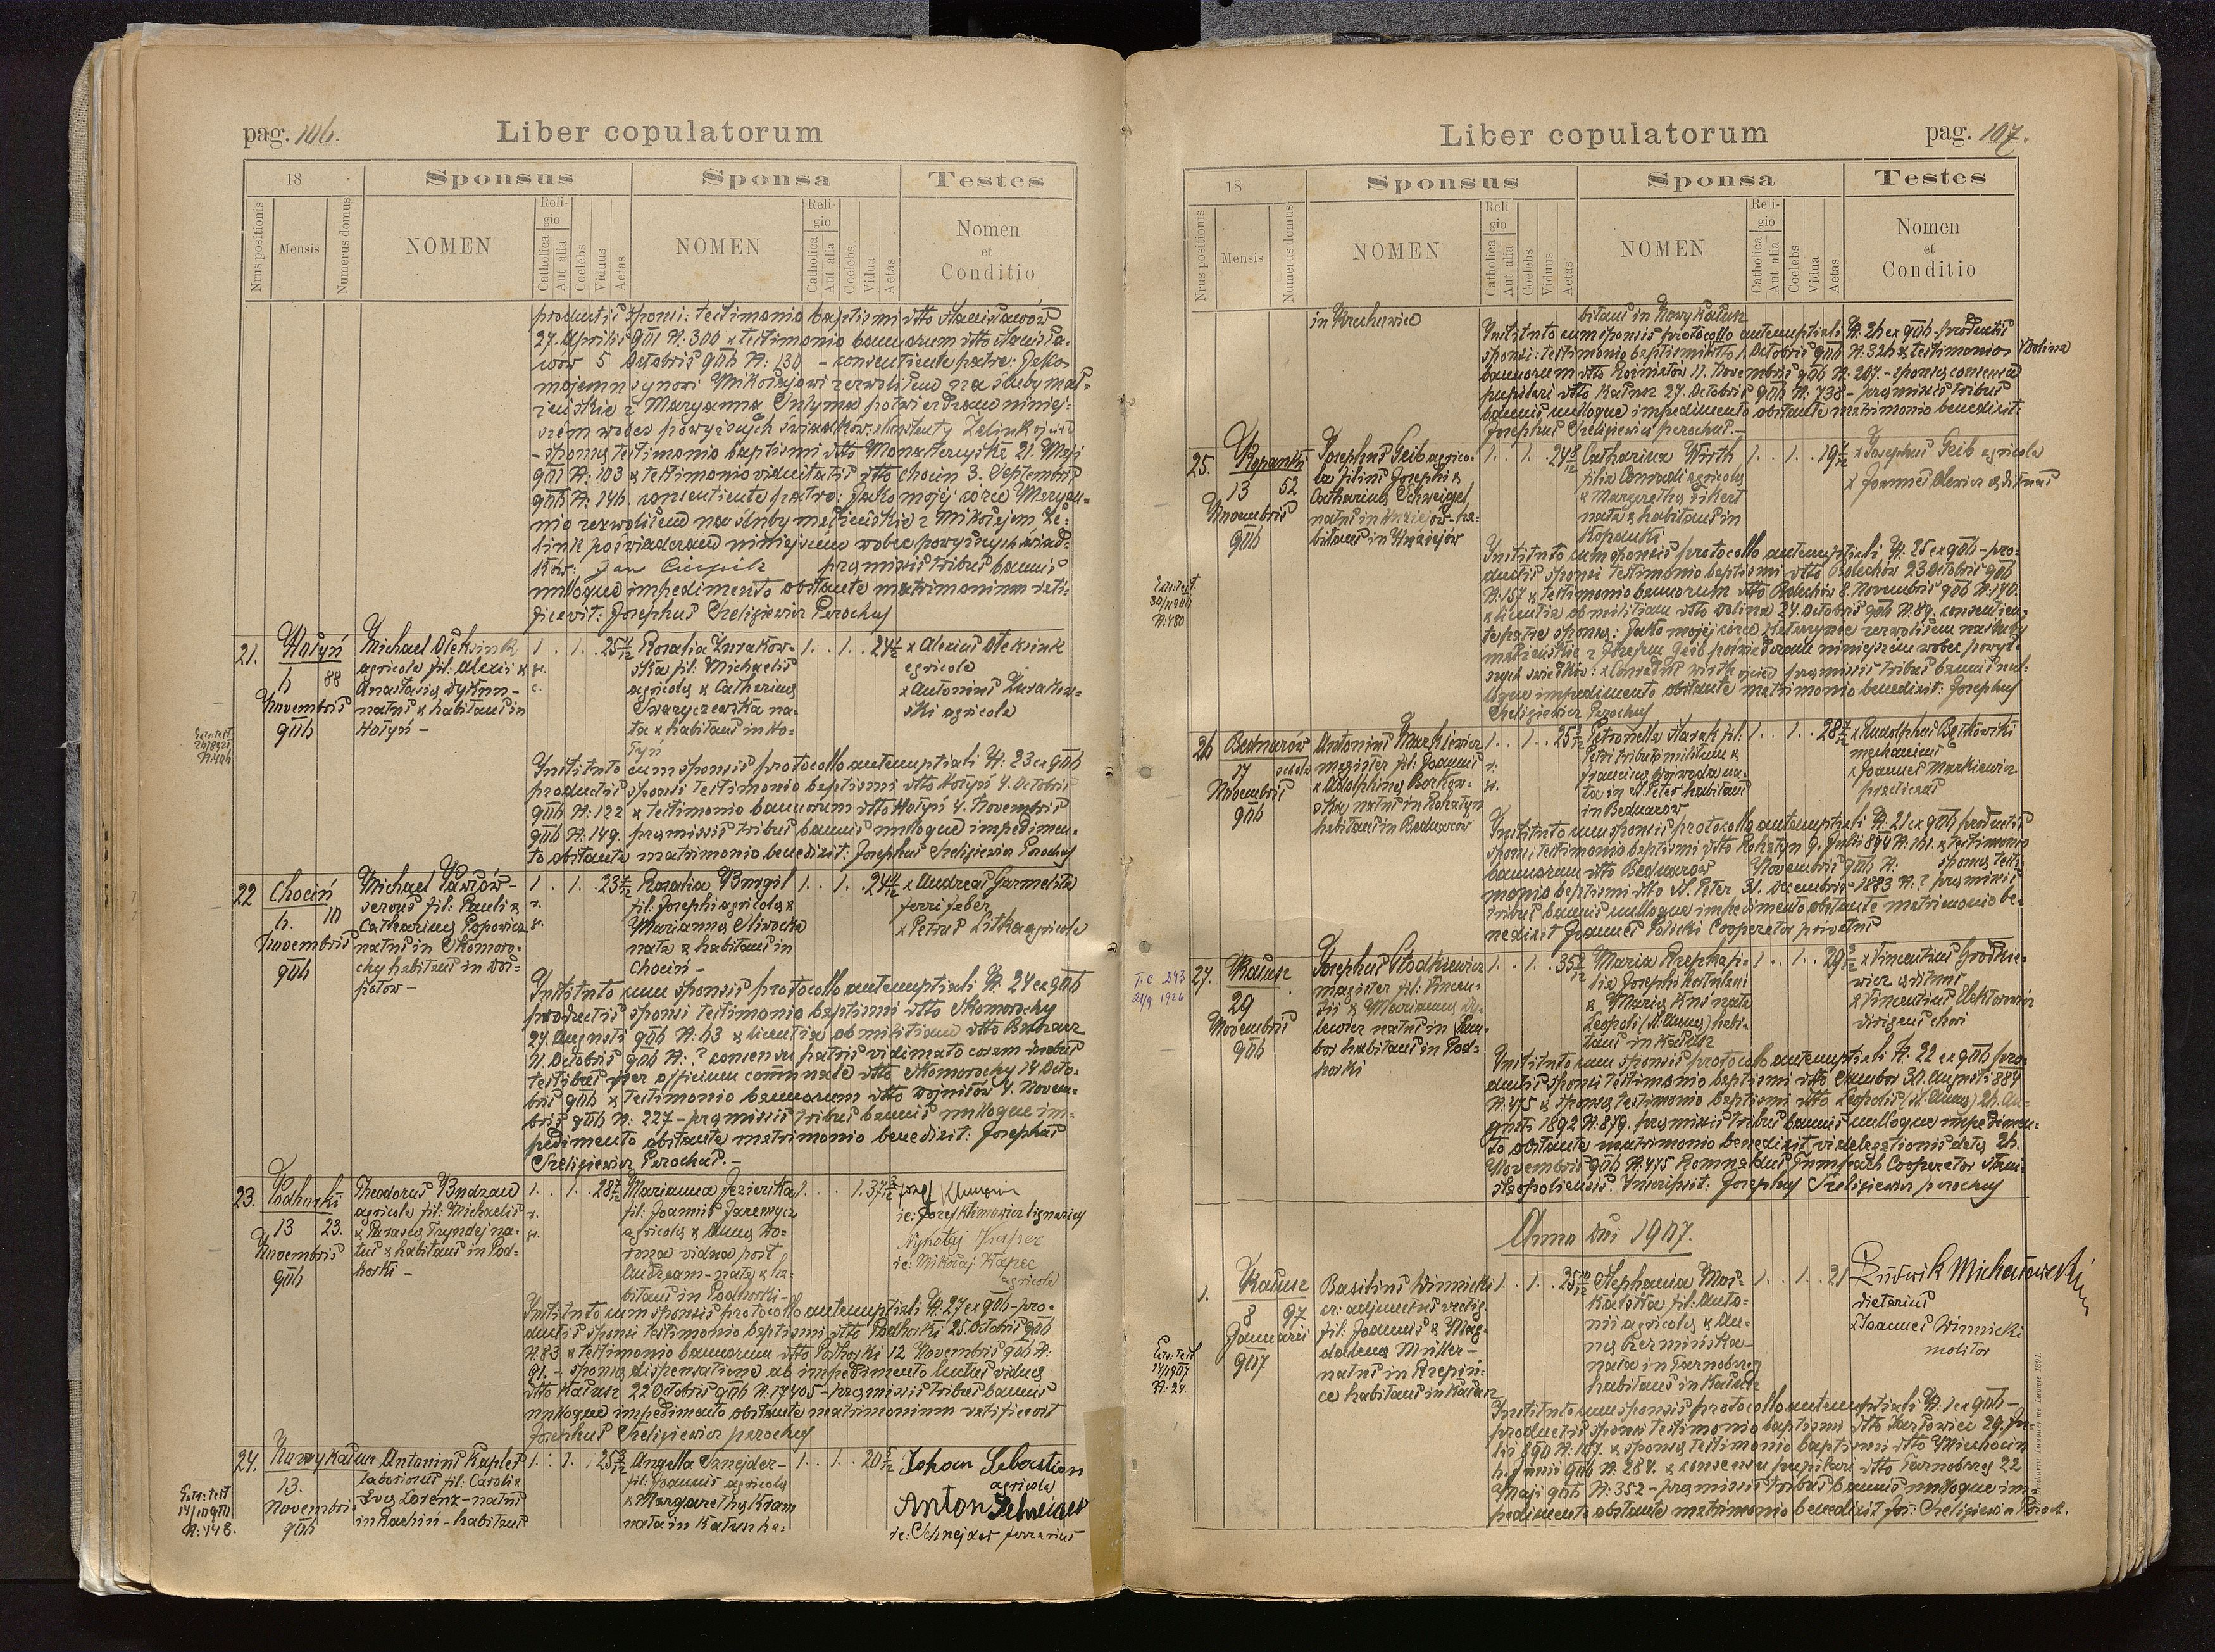 pag. 106.
Liber copulatorum
18
Sponsus
Sponsa
Testes
Nrus positionis
Mensis
Numerus domus
NOMEN
Religio
Catholica
Aut alia
Coelebs
Viduus
Aetas
NOMEN
Religio
Catholica
Aut alia
Coelebs
Vidua
Aetas
Nomen
et
Conditio
productis sponsi: testimonio baptismi dtto Stanisławów
27. Aprilis 901 N: 300 & testimonio bannorum dtto Stanisła-
wów 5 Octobris 906 N: 130 - consentiente patre: Jako
mojemu synowi Mikołajowi zezwoliłem na śluby mał-
żeńskie z Maryanna potwierdzam niniej-
szem wobec powyższych świadków:
- sponsa testimonio baptismi dtto Monasterzyska 21. Maji
901 N: 103 & testimonio viduitatis dtto Chocin 3. Septembris
906 N: 146. consentiente patre: Jako mojej córce Maryan-
nie zezwoliłem na śluby małżeńskie z Mikołajem Ze-
link poświadczam niniejszem wobec powyższych świad-
ków: praemissis tribus bannis
nulloque impedimento obstante matrimonium rati-
ficavit: Josephus Szeligiewicz Parochus
21.
Hołyń
6 88
Novembris
906
Michael Oleksiuk
agricola fil: Alexii &
Anastasia Dykun -
natus & habitans in
Hołyń -
1 . 1 . 25
gr.
c.
Rosalia Żurakow-
ska fil: Michaelis
agricolae & Catharina
Swaryczewska na-
ta & habitans in Ho-
łyń
1. . 1. . 24
x Alexius Oleksiuk
agricola
x Antonius Żurakow-
ski agricola
Instituto cum sponsis protocollo antenuptiali N: 23 ex 906
productis sponsi testimonio baptismi dtto Hołyń 4. Octobris
906 N: 122 & testimonio bannorum dtto Hołyń 4. Novembris
906 N: 149. praemissis tribus bannis nulloque impedimen-
to obstante matrimonio benedixit: Josephus Szeligiewicz Parochus
22
Chocin
6. 10
Novembris
906
Michael Pawłow-
servus fil: Pauli &
Catharina Popowicz
natus in Skomoro-
chy habitans in Doł-
potów -
1 . 1. 23
r.
gr.
Rosalia
fil: Josephi agricolae &
Marianna Sliwocka
nata & habitans in
Chocin -
1. . 1. . 24
x Andreas Garmelita
ferri faber
x Petrus Litka agricola
Instituto cum sponsis protocollo antenuptiali N: 24 ex 906
productis sponsi testimonio baptismi dtto Skomorochy
27. Augusti 906 N: 63 & licentia ob militiam dtto
11. Octobris 906 N: ? consensu patris vidimato coram duobus
testibus per officium communale dtto Skomorochy 14 Octo-
bris 906 & testimonio bannorum dtto Wojniłów 4. Novem-
bris 906 N: 227 - praemissis tribus bannis nulloque im-
pedimento obstante matrimonio benedixit: Josephus
Szeligiewicz Parochus. -
23.
Podhorki
13 23.
Novembris
906
Theodorus Budzan
agricola fil: Michaelis
& Parasca Tryndej na-
tus & habitans in Pod-
horki -
1. . 1. . 28
r.
gr.
Marianna Jezierska
fil: Joannis Jaremycz
agricolae & Anna Do-
rosz vidua post
Andream - nata & ha-
bitans in Podhorki -
1. . . 1. 37
Józef Klimowicz
ie: Józef Klimowicz lignarius
Mykołaj Kapec
ie: Mikołaj Kapec
agricola
Instituto cum sponsis protocollo antenuptiali N: 27 ex 906 - pro-
ductis sponsi testimonio baptismi dtto Podhorki 25. Octobris 906
N: 83 & testimonio bannorum dtto Podhorki 12 Novembris 906 N:
91. - sponsa dispensatione ab impedimento luctus vidua
dtto Kałusz 22 Octobris 906 N. 17405 - praemissis tribus bannis
nulloque impedimento obstante matrimonium ratificavit
Josephus Szeligiewicz parochus
24.
Nowy Kałusz
13.
Novembris
906
Antonius Kapler
laboriosus fil: Caroli &
Eva Lorenz - natus
in Rachin - habitans
1. . 1. . 25
Angella Sznejder -
fil: Joannis agricolae
& Margaretha Kram
nata in Kałusz ha-
1. . 1. . 20
Johan Sebastian
agricola
Anton Schneider
ie: Schnejder ferrarius
Liber copulatorum
pag. 107.
18
Sponsus
Sponsa
Testes
Nrus positionis
Mensis
Numerus domus
NOMEN
Religio
Catholica
Aut alia
Coelebs
Viduus
Aetas
NOMEN
Religio
Catholica
Aut alia
Coelebs
Vidua
Aetas
Nomen
et
Conditio
in Krechowice
bitans in Nowy Kałusz
Instituto cum sponsis protocollo antenuptiali N: 26 ex 906 - productis
sponsi: testimonio baptismi dtto 1. Octobris 906 N: 326 & testimonio Dolina
bannorum dtto Rożniatów 11. Novembris 906 N: 207. - sponsa consensu
pupilari dtto Kałusz 27. Octobris 906 N. 738 - praemissis tribus
bannis nulloque impedimento obstante matrimonio benedixit:
Josephus Szeligiewicz parochus. -
25.
Kopanki
13 52
Novembris
906
Josephus Geib agrico-
la filius Josephi &
Catharina Schweigel
natus in Ugzięjów - ha-
bitans in Ugzięjów
1. . 1. 24
Catharina Wirth
filia Conradi agricolae
& Margaretha Sikert
nata & habitans in
Kopanki
1. . 1. . 19
x Josephus Geib agricola
x Joannes Alewicz aedituus
Instituto cum sponsis protocollo antenuptiali N. 25 ex 906 - pro-
ductis sponsi testimonio baptismi dtto Bolechów 23 Octobris 906
N: 157 & testimonio bannorum dtto Bolechów 8. Novembris 906 N: 140.
& licentia ob militiam dtto Dolina 24. Octobris 906 N: 89. consentien-
te patre sponsa: Jako mojej córce Katarzynie zezwoliłem na śluby
małżeńskie z Józefem Geib poświadczam niniejszem wobec powyż-
szych świadków: x Conradus Wirth ojciec praemissis tribus bannis nul-
loque impedimento obstante matrimonio benedixit: Josephus
Szeligiewicz Parochus
26
Bednarów
17 schola
Novembris
906
Antonius Markiewicz
magister fil: Joannis
& Adolphina Borkow-
ska natus in Rohatyn
habitans in Bednarów
1. . 1. . 25
r.
gr.
Petronella Starak fil:
Petri tributi militum &
Francisca Wojwoda na-
ta in St. Peter habitans
in Bednarów
1. . 1. . 28
x Rudolphus Bętkowski
mechanicus
x Joannes Markiewicz
Instituto cum sponsis protocollo antenuptiali N: 21 ex 906 productis
sponsi testimonio baptismi dtto Rohatyn 9. Julii 894 N: 161. & testimonio
bannorum dtto Bednarów Novembris 906 N: sponsa testi-
monio baptismi dtto St. Peter 31. Decembris 1883 N: ? praemissis
tribus bannis nulloque impedimento obstante matrimonio be-
nedixit Joannes Policki Cooperator privatus
27.
Kałusz
29
Novembris
906
Josephus Słodkiewicz
magister fil: Vincen-
tii & Marianna
natus in Sam-
bor habitans in Pod-
horki
1. . 1. . 35
Maria Przephasi-
lia Josephi
& Maria Kni nata
Leopoli (St. Anna) habi-
tans in Kałusz
1. . 1. . 29
x Vincentius Grodkie-
wicz aedituus
x Vincentius Nektarowicz
dirigens chori
Instituto cum sponsis protocollo antenuptiali N. 22 ex 906 pro-
ductis sponsi testimonio baptismi dtto Sambor 30. Augusti 884
N. 475 & sponsa testimonio baptismi dtto Leopolis (St. Anna) 26. Au-
gusti 1892 N: 879. praemissis tribus bannis nulloque impedimen-
to obstante matrimonio benedixit vi delegationis data 26.
Novembris 906 N. 475 Romualdus Cooperator Stani-
slaopoliensis. Inscripsit: Josephus Szeligiewicz parochus
Anno Dni 1907.
1.
Kałusz
8 97
Januarii
907
Basilius Winnicki
cr: adjunctus vectig.
fil: Joannis & Mag-
dalena Müller -
natus in Rzepin-
ce habitans in Kałusz
1. . 1. . 25
Stephania Mos-
kalska fil: Anto-
nii agricolae & An-
na Czermińska -
nata in Tarnobrzeg
habitans in Kałusz
1. . 1. . 21
Ludwik Michałowski
dietarius
x Joannes Winnicki
molitor
Instituto cum sponsis protocollo antenuptiali N: 1 ex 906 -
productis sponsi testimonio baptismi dtto Jazłowiec 29. Ju-
lii 890 N. 107. & sponsa testimonio baptismi dtto Miechocin
6. Junii 906 N. 287. & consensu pupilari dtto Tarnobrzeg 22
Maji 906 N: 352 - praemissis tribus bannis nulloque im-
pedimento obstante matrimonio benedixit Jos: Szeligiewicz Paroch.
T. C 243
21/9 1926